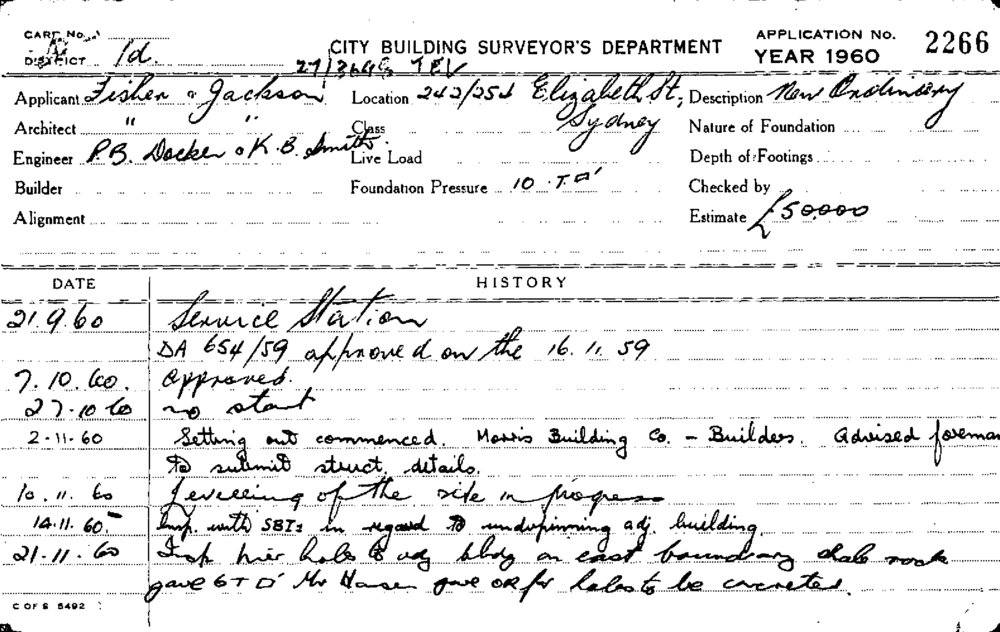 CARD No.
DISTRICT 1d.
CITY BUILDING SURVEYOR'S DEPARTMENT
APPLICATION No. 2266
YEAR 1960
Applicant Fisher & Jackson
Location 242/254 Elizabeth St, Sydney
Description New Ordinary
Architect " "
Class
Nature of Foundation
Engineer P.B. Docker & K.B. Smith.
Live Load
Depth of Footings
Builder
Foundation Pressure 10 T □'
Checked by
Alignment
Estimate £50,000
DATE HISTORY
21.9.60 Service Station
DA 654/59 approved on the 16.11.59
7.10.60. approved.
27.10 60 no start
2-11-60 Setting out commenced. Morris Building Co. - Builders. Advised foreman
to submit struct. details.
10.11.60 Levelling of the site in progress
14.11.60 Insp. with SBIs in regard to underpinning adj. building
21-11-60 Insp pier hole to adj bldg on east boundary shale rock
gave 6 T □' Mr Hansen gave OK for holes to be concreted.
C OF S 5492